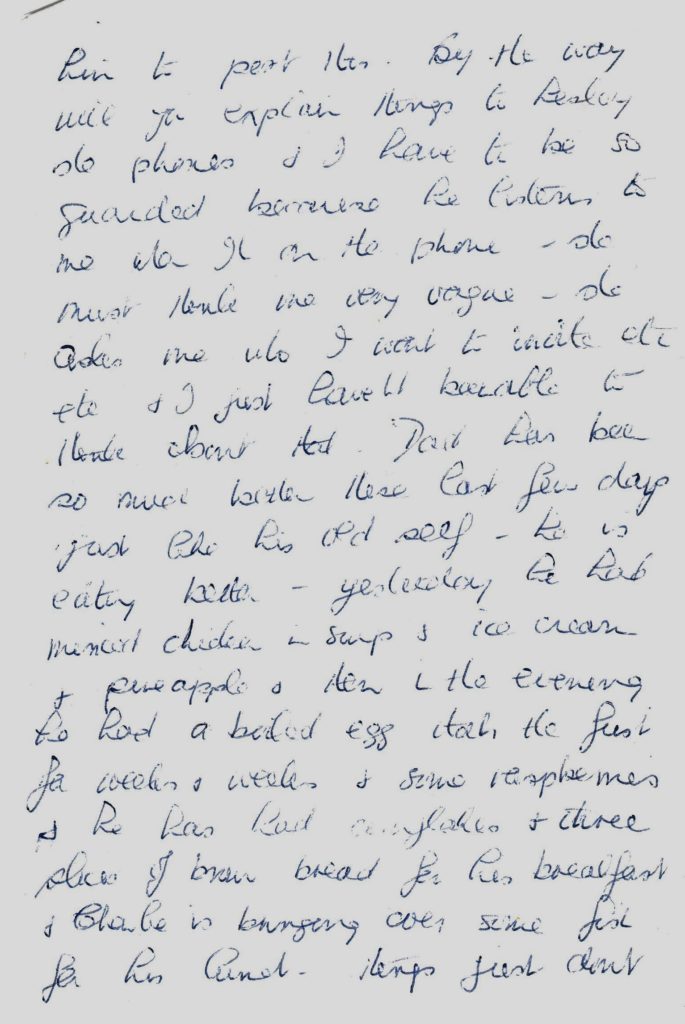 him to post this. By the way
will you explain things to Lesley
she phones & I have to be so
guarded because he listens to
me when I'm on the phone - she
must think me very vague - she
asks me who I want to invite etc
etc & I just haven't been able to
think about that. Dad has been
so much better these last few days
just like his old self - he is
eating better - yesterday he had
minced chicken in soup & ice cream
& pineapple & then in the evening
he had a boiled egg the first
for weeks & weeks & some raspberries
& he has had cornflakes & three
slices of brown bread for his breakfast
& is bringing over some fish
for his lunch - things just don't